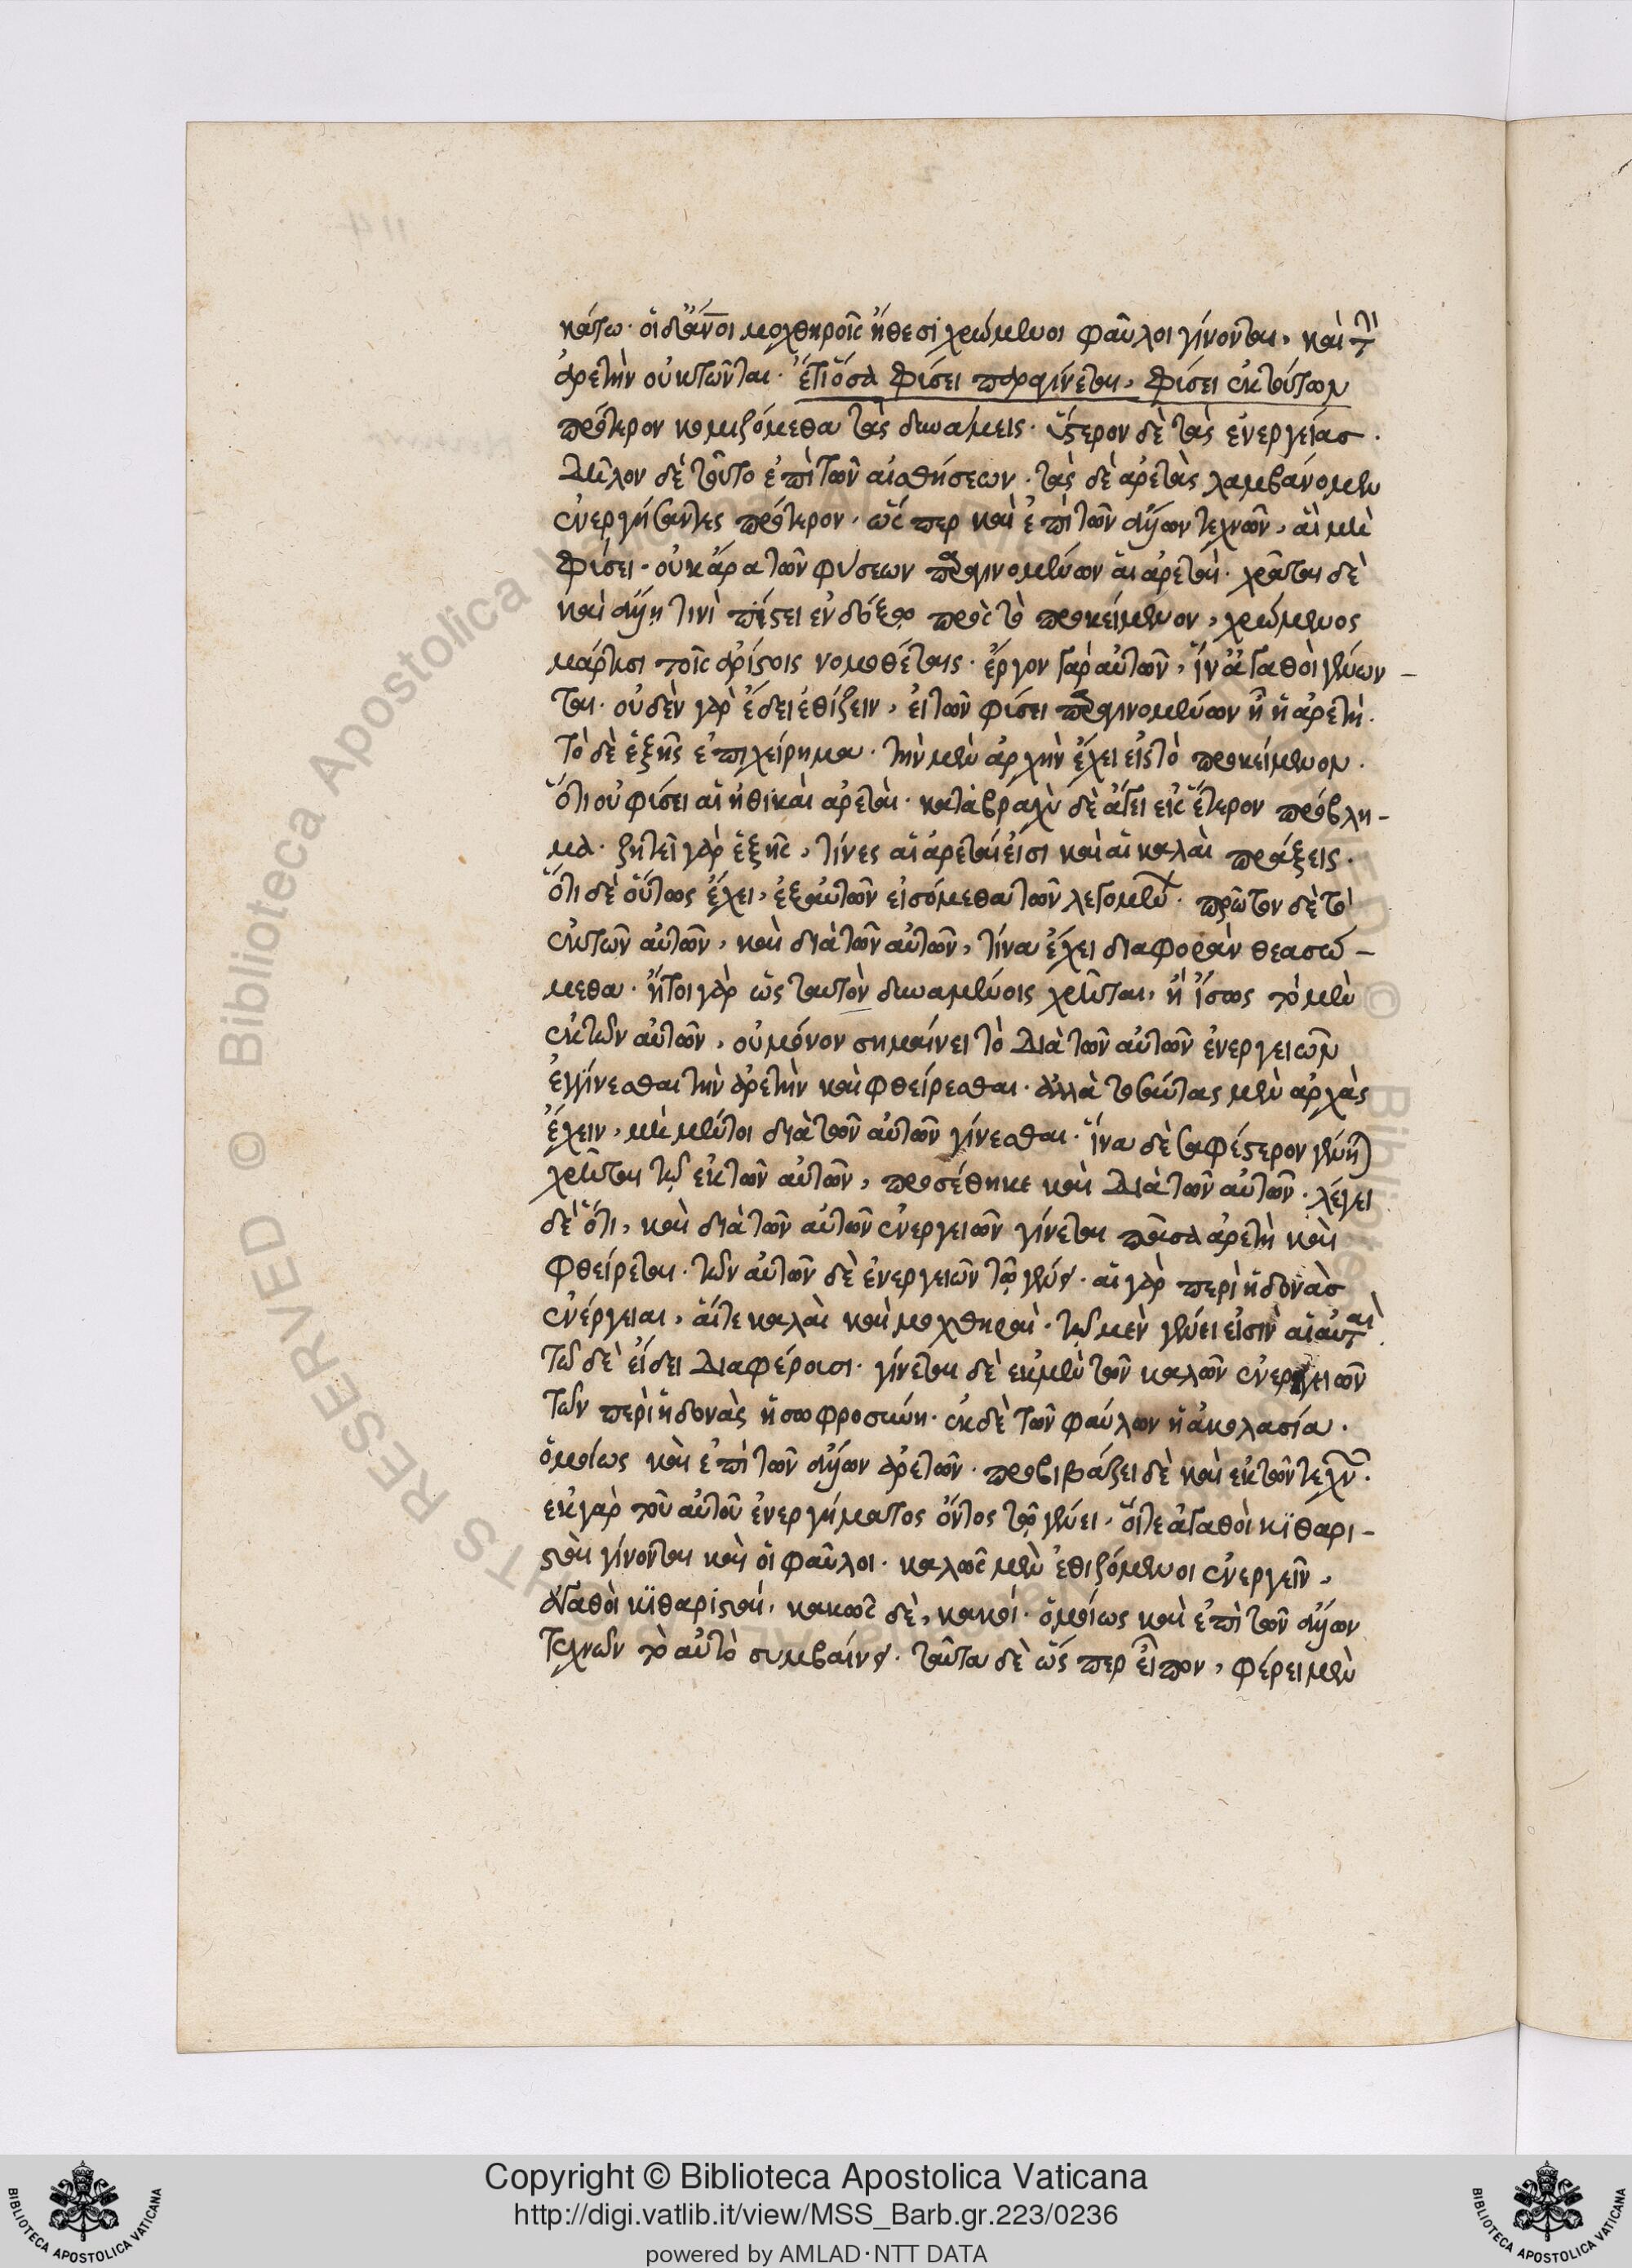 κάτω· οἱ δὲ ἄνοι μοχθηροῖς ἤθεσι χρώμενοι φαῦλοι γίνονται, καὶ τὴν
ἀρετὴν οὐ κτῶνται. ἔτι ὅσα φύσει παραγίνεται, φύσει ἐκ τούτων
πρότερον κομιζόμεθα τὰς δυνάμεις· ὕστερον δὲ τὰς ἐνεργείας.
δῆλον δὲ τοῦτο ἐπὶ τῶν αἰσθήσεων· τὰς δὲ ἀρετὰς λαμβάνομεν
ἐνεργήσαντες πρότερον· ὥς περ καὶ ἐπὶ τῶν ἄλλων τεχνῶν, αἳ μὴ
φύσει. οὐκ ἄρα τῶν φύσεων παραγινομένων αἱ ἀρεταί. χρᾶται δὲ
καὶ ἄλλῃ τινὶ πίστει ἐνδόξῳ πρὸς τὸ προκείμενον, χρώμενος
μάρτυσι τοῖς ἀρίστοις νομοθέταις· ἔργον γὰρ αὐτῶν, ἵν' ἀγαθοὶ γένων-
ται. οὐδὲν γὰρ ἔδει ἐθίζειν, εἰ τῶν φύσει παραγινομένων ἦ ἡ ἀρετή.
τὸ δὲ ἑξῆς ἐπιχείρημα· τὴν μὲν ἀρχὴν ἔχει εἰς τὸ προκείμενον.
ὅτι οὐ φύσει αἱ ἠθικαὶ ἀρεταί· κατὰ βραχὺ δὲ ἄγει εἰς ἕτερον πρόβλη-
μα· ζητεῖ γὰρ ἑξῆς, τίνες αἱ ἀρεταί εἰσι καὶ αἱ καλαὶ πράξεις.
ὅτι δὲ οὕτως ἔχει, ἐξ αὐτῶν εἰσόμεθα τῶν λεγομένων. πρῶτον δὲ τὸ
ἐκ τῶν αὐτῶν, καὶ διὰ τῶν αὐτῶν, τίνα ἔχει διαφορὰν θεασώ-
μεθα. ἤτοι γὰρ ὡς ταυτὸν δυναμένοις χρῆται, ἢ ἴσως τὸ μὲν
ἐκ τῶν αὐτῶν, οὐ μόνον σημαίνει τὸ διὰ τῶν αὐτῶν ἐνεργειῶν
ἐγγίνεσθαι τὴν ἀρετὴν καὶ φθείρεσθαι· ἀλλὰ τὸ ταύτας μὲν ἀρχὰς
ἔχειν, μὴ μέντοι διὰ τῶν αὐτῶν γίνεσθαι. ἵνα δὲ σαφέστερον γένη
χρῆται τῷ ἐκ τῶν αὐτῶν, προσέθηκε καὶ διὰ τῶν αὐτῶν. λέγει
δὲ ὅτι, καὶ διὰ τῶν αὐτῶν ἐνεργειῶν γίνεται πᾶσα ἀρετὴ καὶ
φθείρεται. τῶν αὐτῶν δὲ ἐνεργειῶν τῷ γένει. αἱ γὰρ περὶ ἡδονὰς
ἐνέργειαι, αἵ τε καλαὶ καὶ μοχθηραί. τῷ μὲν γένει εἰσὶν αἱ αὐταὶ.
τῷ δὲ εἴδει διαφέρουσι. γίνεται δὲ ἐκ μὲν τῶν καλῶν ἐνεργειῶν
τῶν περὶ ἡδονὰς ἡ σωφροσύνη. ἐκ δὲ τῶν φαύλων ἡ ἀκολασία.
ὁμοίως καὶ ἐπὶ τῶν ἄλλων ἀρετῶν. προβιβάζει δὲ καὶ ἐκ τῶν τεχνῶν.
ἐκ γὰρ τοῦ αὐτοῦ ἐνεργήματος ὄντος τῷ γένει, οἵ τε ἀγαθοὶ κιθαρι-
σταὶ γίνονται καὶ οἱ φαῦλοι. καλῶς μὲν ἐθιζόμενοι ἐνεργεῖν,
ἀγαθοὶ κιθαρισταί, κακῶς δὲ, κακοί. ὁμοίως καὶ ἐπὶ τῶν ἄλλων
τεχνῶν τὸ αὐτὸ συμβαίνει. ταῦτα δὲ ὥς περ εἶπον, φέρει μὲν
Copyright © Biblioteca Apostolica Vaticana
http://digi.vatlib.it/view/MSS_Barb.gr.223/0236
powered by AMLAD·NTT DATA